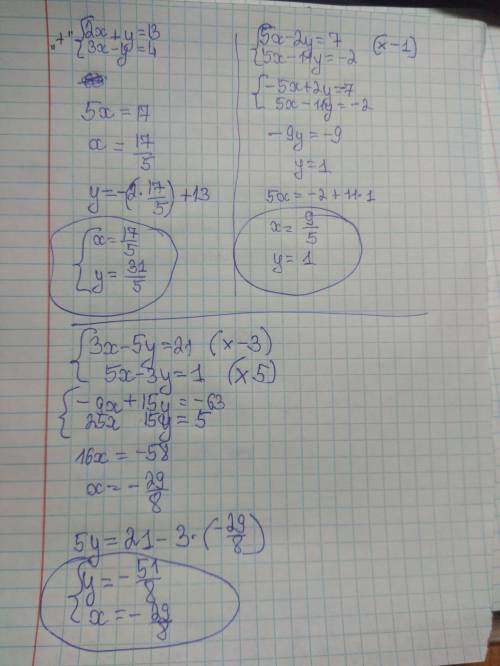 "+" {2x+y=13
{3x-y=4
5x=17
x=17/5
y=-(2·17/5)+13
{x=17/5
{y=31/5
{5x-2y=7 (x-1)
{5x-11y=-2
{-5x+2y=-7
{5x-11y=-2
-9y=-9
y=1
5x=-2+11·1
x=9/5
y=1
{3x-5y=21 (x-3)
{5x-3y=1 (x5)
{-9x+15y=-63
{25x 15y=5
16x=-58
x=-29/8
5y=21-3·(-29/8)
{y=-51/8
{x=-29/8